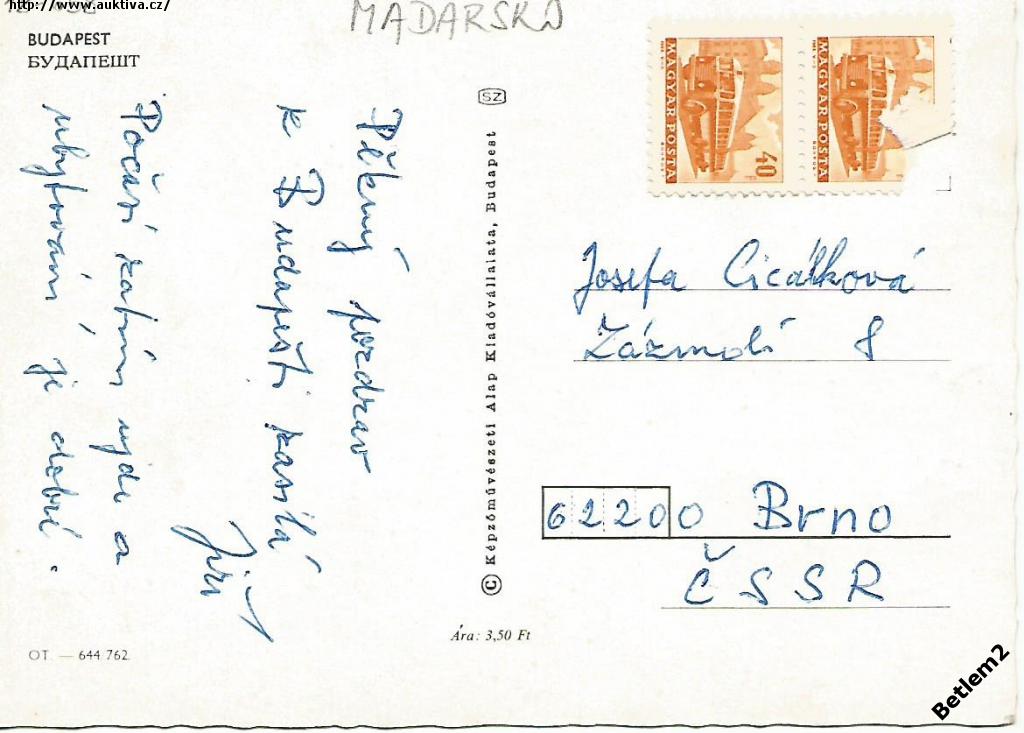 http://www.auktiva.cz/
MAĎARSKO
BUDAPEST
БУДАПЕШТ
Pěkný pozdrav
k Budapešti zasílá
Jiří
Počasí zatím ujde a
ubytování je dobré.
SZ
© Képzőművészeti Alap Kiadóvállalata, Budapest
MAGYAR POSTA
40
MAGYAR POSTA
Josefa Cicálková
Zázmolí 8
62200 Brno
ČSSR
Ára: 3,50 Ft
OT. — 644 762
Betlem2